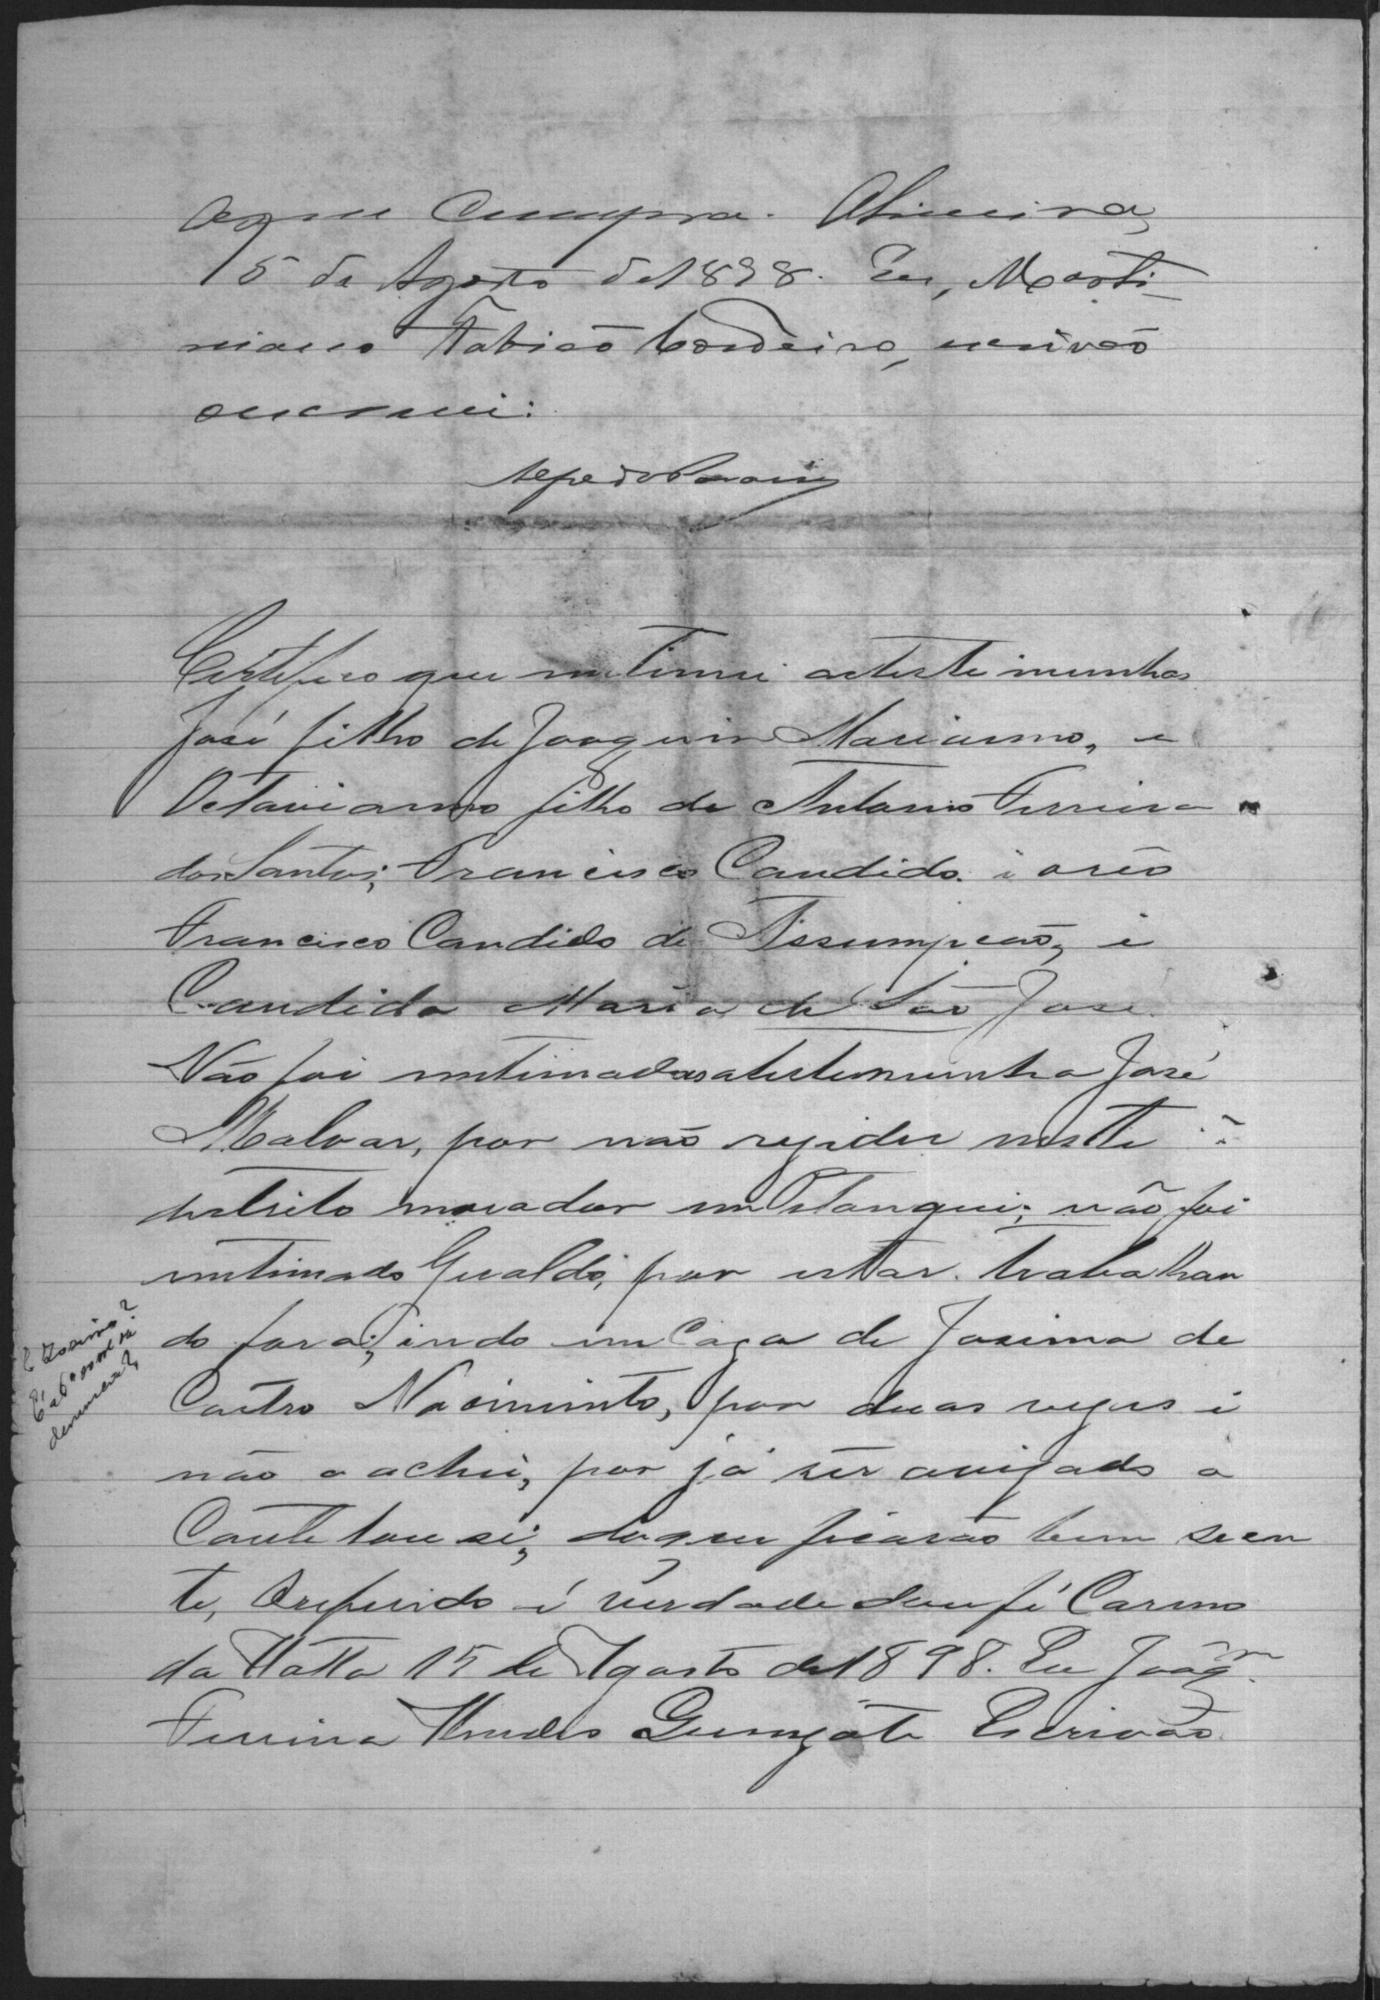 o que cumpra. Oliveira,
5 de Agosto de 1898. Eu, Marti-
niano Fabião Cordeiro, escrivão
escrevi:
Certifico que intimei as testimunhas
José filho de Joaquim Marianno, e
Octavianno filho de Antonio Ferreira
dos Santos, Francisco Candido. i oréo
Francisco Candido de Assumpção, i
Candida Maria de São José.
Não foi intimada a testemunha José
Malvar, por não rezider neste
distrito morador em Pitangui; não foi
intimado Geraldo, por estar. trabalhan
do fora; indo em Caza de Jozima de
Castro Nacimento, por duas vezes i
não o achei, por já ser avizado o
doque ficarão bem scen
te, Oreferido é verdade dou fé Carmo
da Matta 15 de Agosto de 1898. Eu Joaqm.
Ferreira Mendes Escrivão.